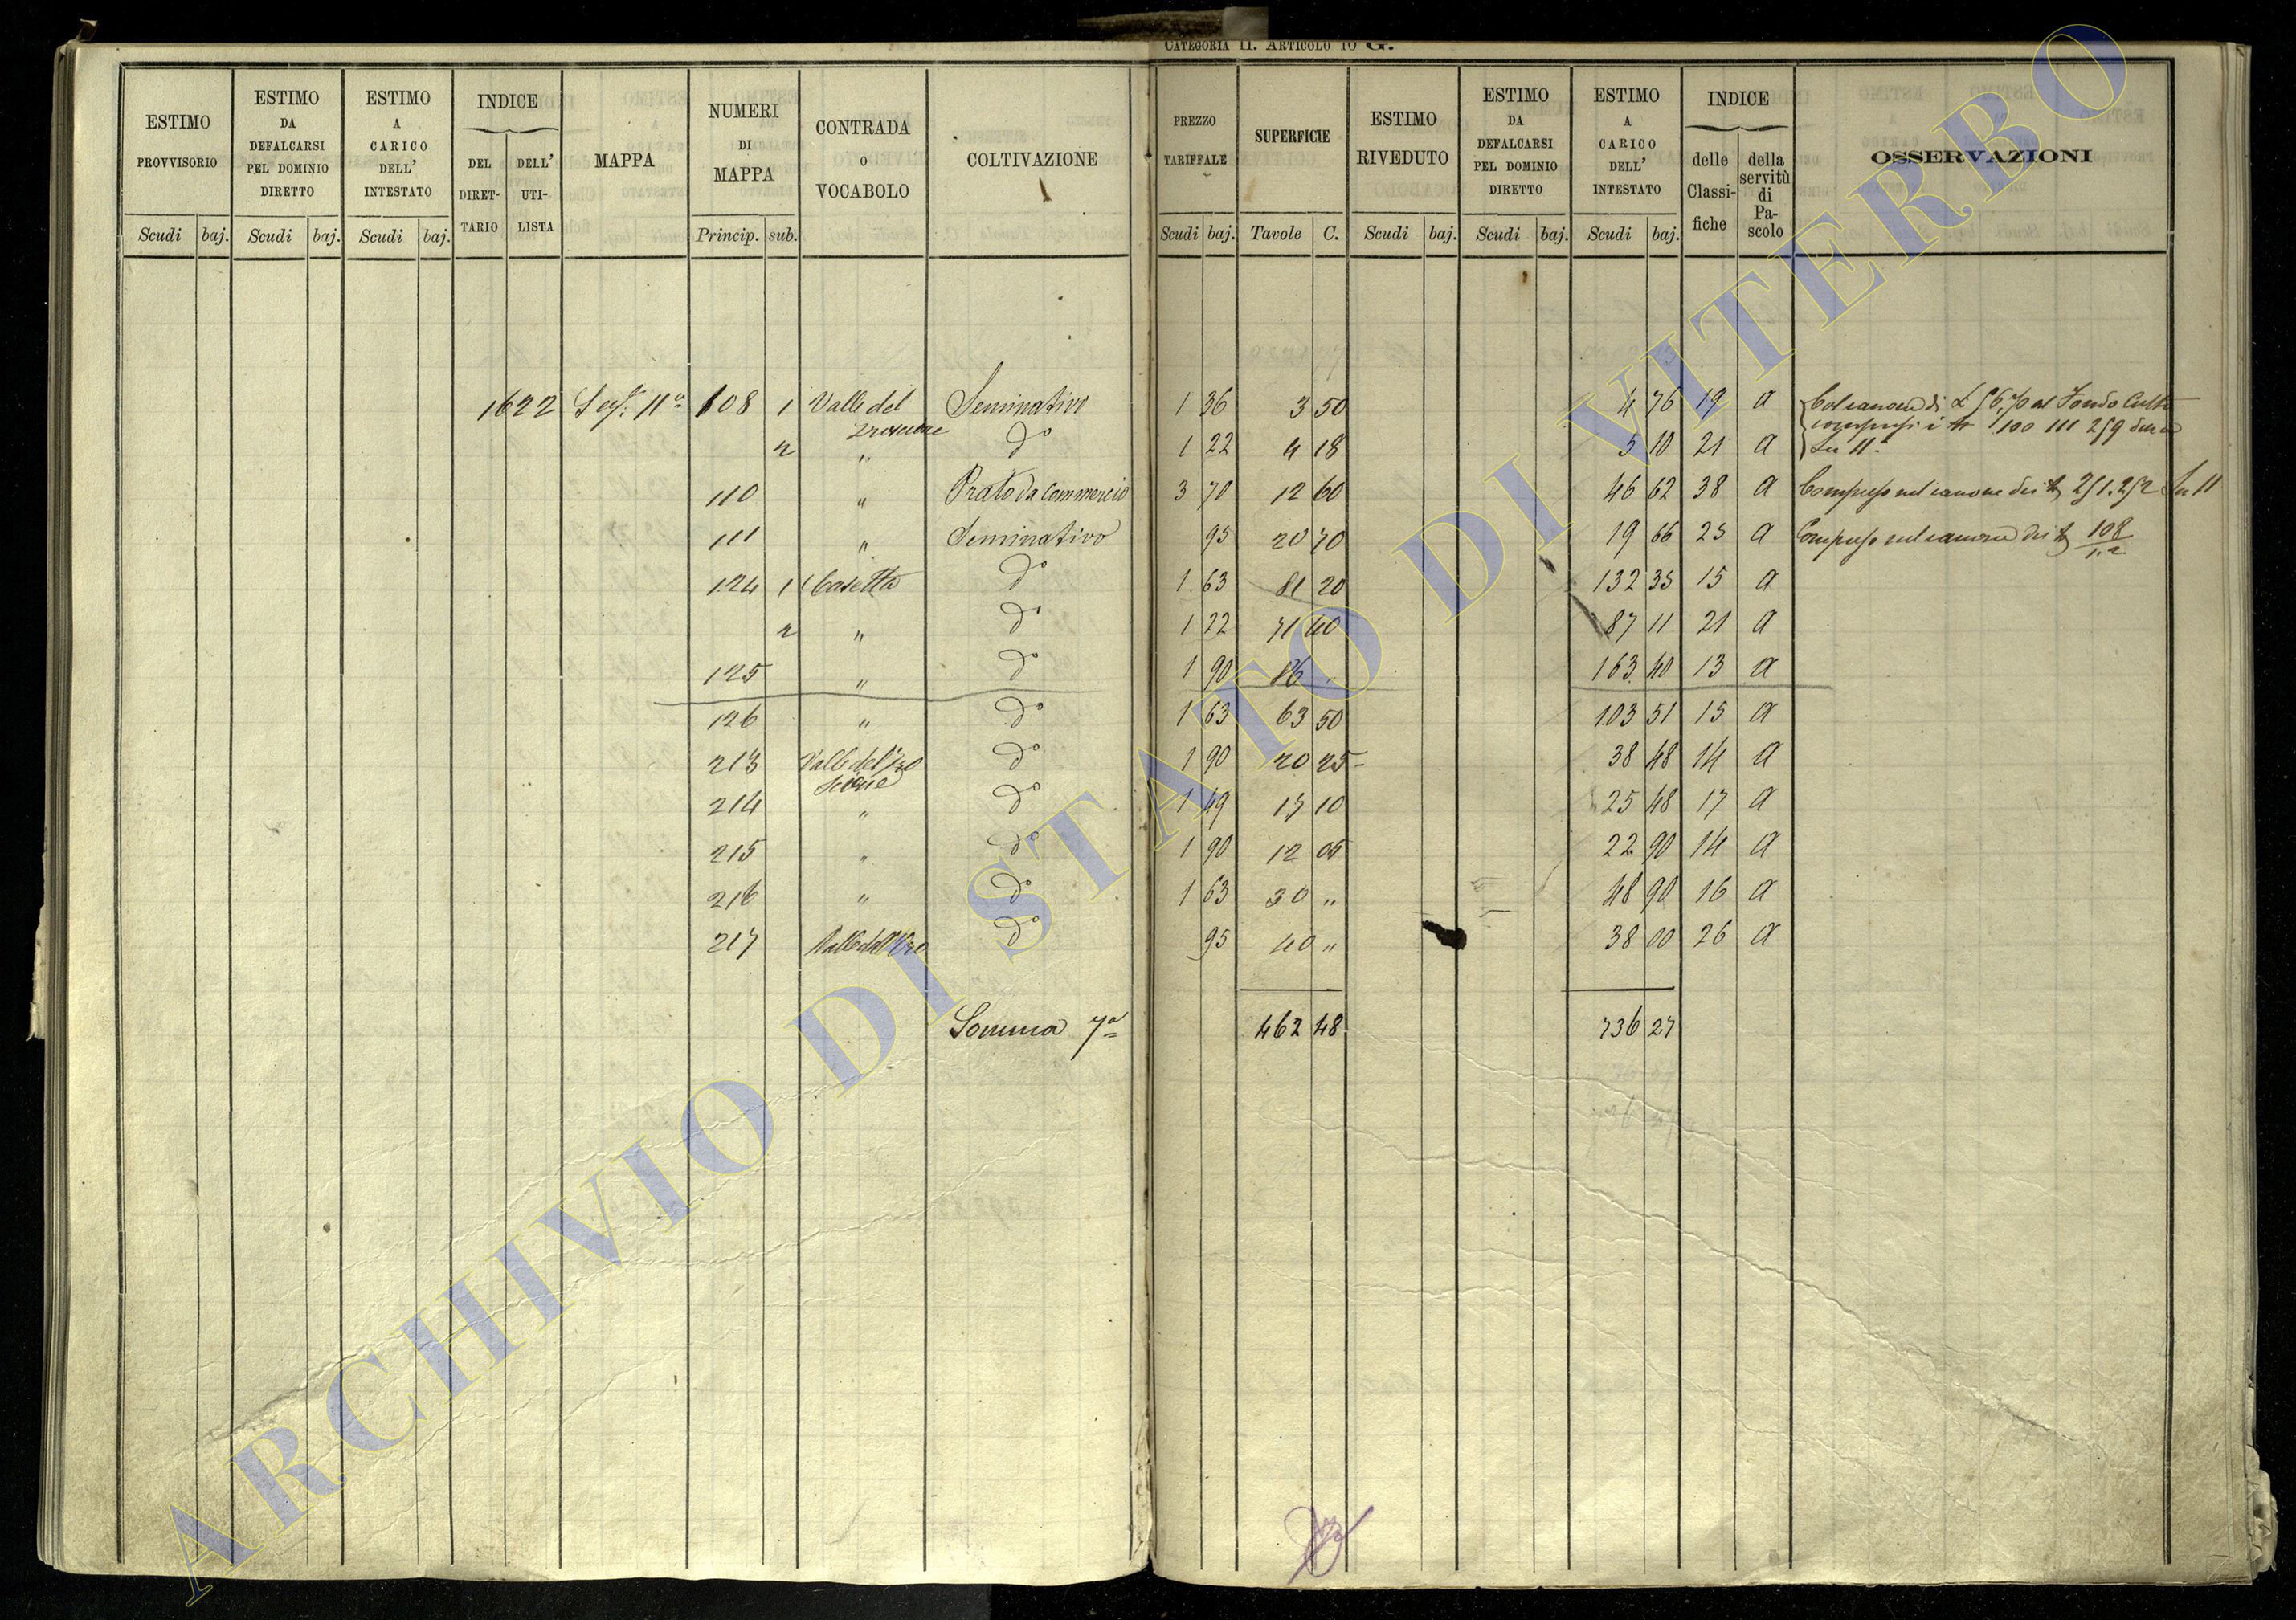 CATEGORIA II. ARTICOLO 10 G.
ESTIMO PROVVISORIO Scudi baj.
ESTIMO DA DEFALCARSI PEL DOMINIO DIRETTO Scudi baj.
ESTIMO A CARICO DELL' INTESTATO Scudi baj.
INDICE DEL DIRET-TARIO DELL' UTI-LISTA
MAPPA
NUMERI DI MAPPA Princip. sub.
CONTRADA O VOCABOLO
COLTIVAZIONE
PREZZO TARIFFALE Scudi baj.
SUPERFICIE Tavole C.
ESTIMO RIVEDUTO Scudi baj.
ESTIMO DA DEFALCARSI PEL DOMINIO DIRETTO Scudi baj.
ESTIMO A CARICO DELL' INTESTATO Scudi baj.
INDICE delle Classi-fiche della servitù di Pa-scolo
OSSERVAZIONI
1622 11a 108 1 Valle del Seminativo 1 36 3 50 4 76 19 a Col canone di £ 56,70 al Fondo Culto
2 " do 1 22 4 18 5 10 21 a compresi i 100 111 259
11a
110 " Prato da Commercio 3 70 12 60 46 62 38 a Compreso nel canone dei 251.252 11
111 " Seminativo 95 20 70 19 66 25 a Compreso nel canone dei 108/1.a
124 1 Casetta do 1 63 81 20 132 35 15 a
2 " do 1 22 71 40 87 11 21 a
125 " do 1 90 86 " 163 40 13 a
126 " do 1 63 63 50 103 51 15 a
213 Valle del do 1 90 20 25 38 48 14 a
214 " do 1 49 17 10 25 48 17 a
215 " do 1 90 12 05 22 90 14 a
216 " do 1 63 30 " 48 90 16 a
217 Valle dell'Oro do 95 40 " 38 00 26 a
Somma 7a 462 48 736 27
ARCHIVIO DI STATO DI VITERBO